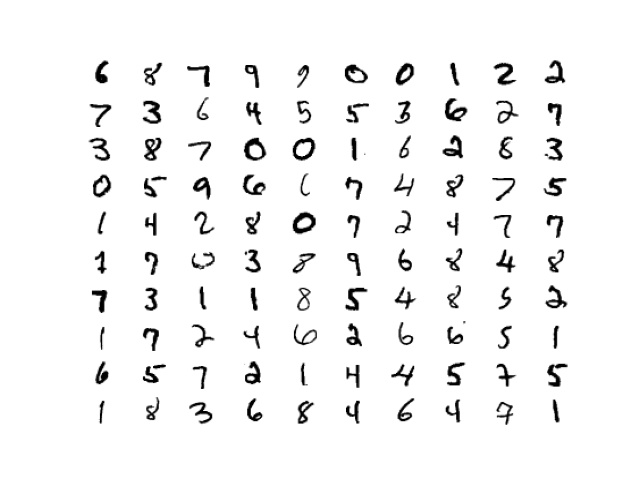 6 8 7 9 9 0 0 1 2 2
7 3 6 4 5 5 3 6 2 7
3 8 7 0 0 1 6 2 8 3
0 5 9 6 6 7 4 8 7 5
1 4 2 8 0 7 2 4 7 7
1 7 0 3 8 9 6 8 4 8
7 3 1 1 8 5 4 8 5 2
1 7 2 4 6 2 6 6 5 1
6 5 7 2 1 4 4 5 7 5
1 8 3 6 8 4 6 4 7 1